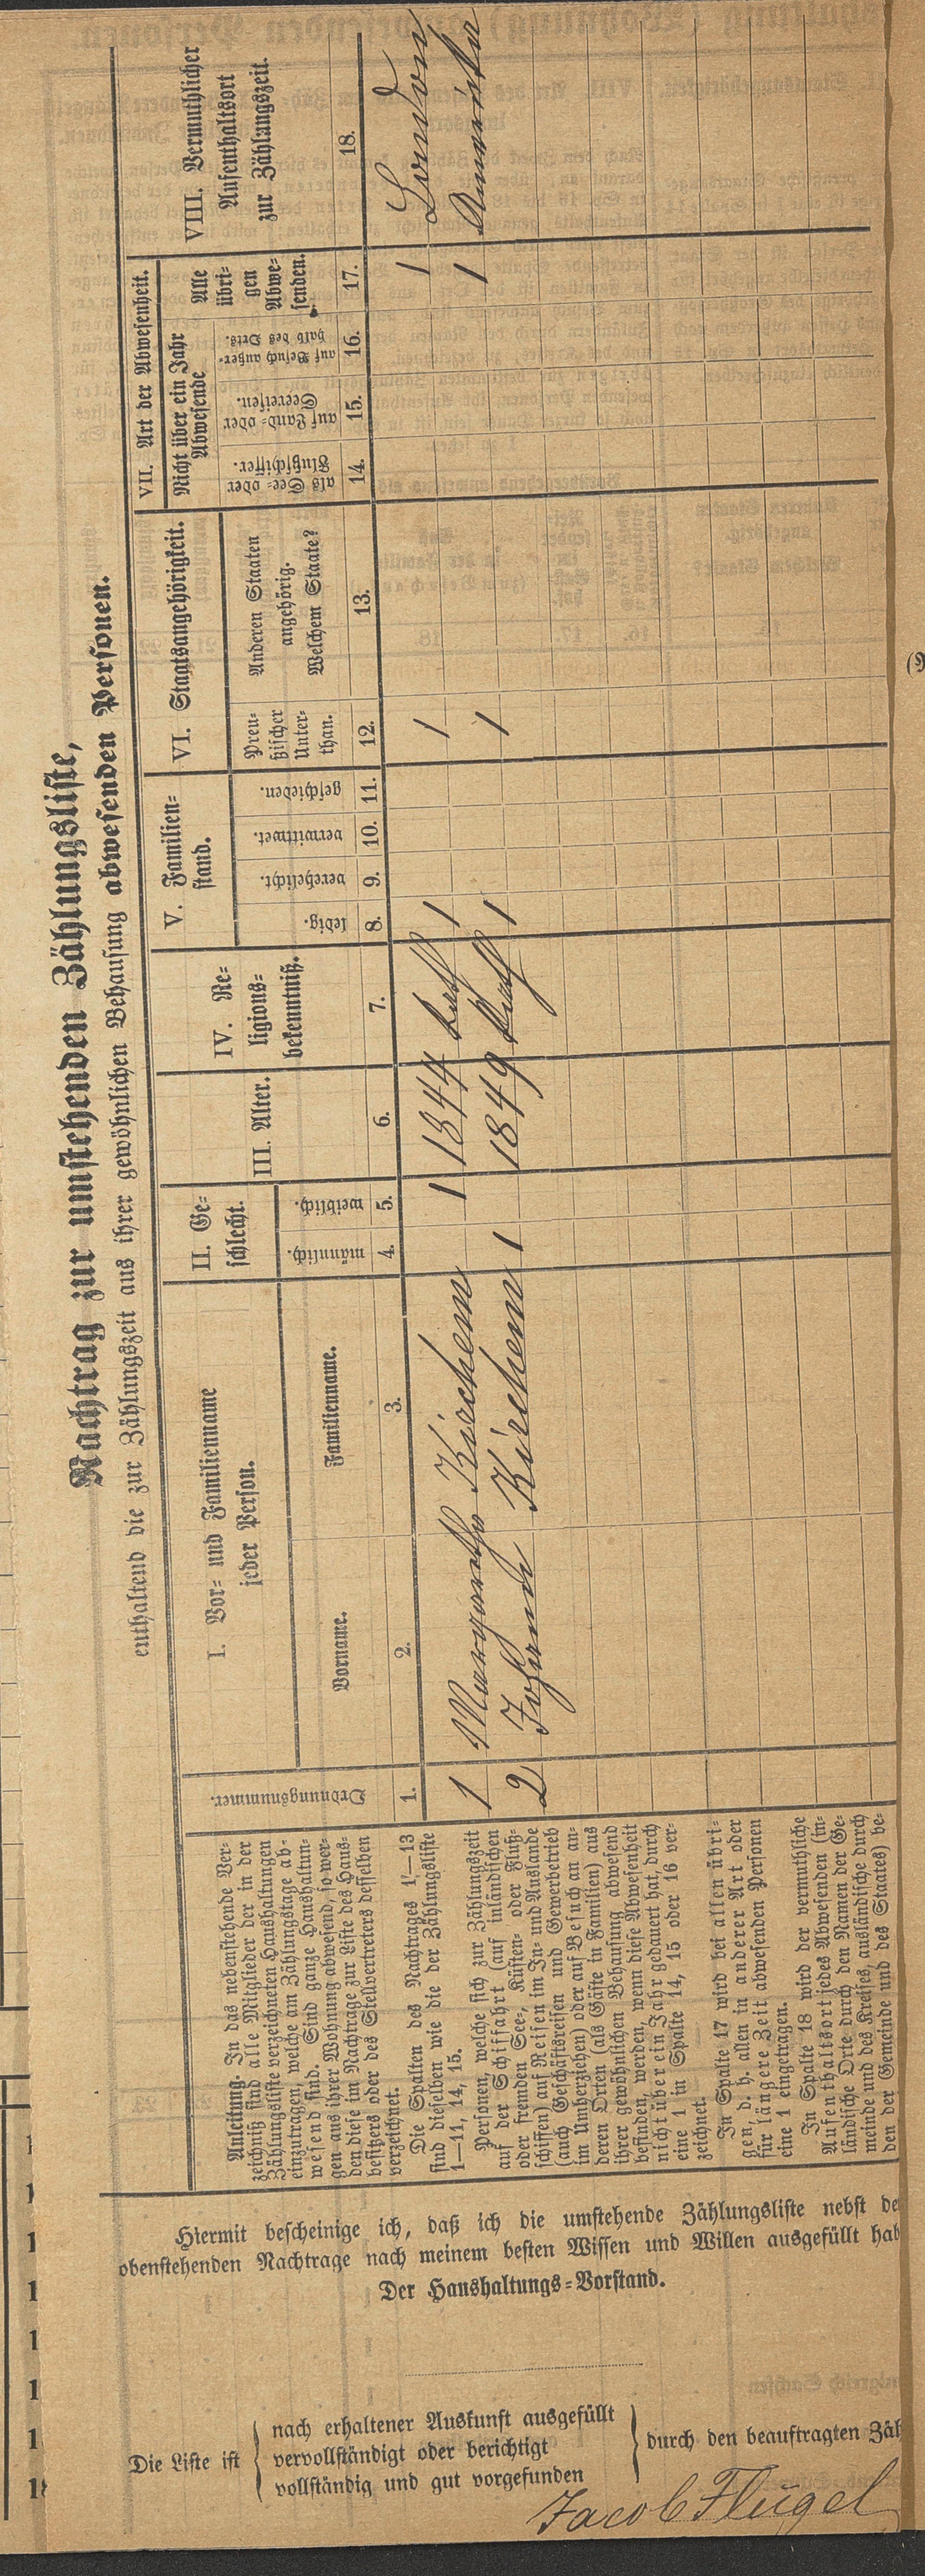 Nachtrag zur umstehenden Zählungsliste,
enthaltend die zur Zählungszeit aus ihrer gewöhnlichen Behausung abwesenden Personen.
Anleitung. In das nebenstehende Ver-
zeichniß sind alle Mitglieder der in der
Zählungsliste verzeichneten Haushaltungen
einzutragen, welche am Zählungstage ab-
wesend sind. Sind ganze Haushaltun-
gen aus ihrer Wohnung abwesend, so wer-
den diese im Nachtrage zur Liste des Haus-
besitzers oder des Stellvertreters desselben
verzeichnet.
Die Spalten des Nachtrages 1—13
sind dieselben wie die der Zählungsliste
1—11, 14, 15.
Personen, welche sich zur Zählungszeit
auf der Schiffahrt (auf inländischen
oder fremden See-, Küsten- oder Fluß-
schiffen) auf Reisen im In- und Auslande
(auch Geschäftsreisen und Gewerbetrieb
im Umherziehen) oder auf Besuch an an-
deren Orten (als Gäste in Familien) aus
ihrer gewöhnlichen Behausung abwesend
befinden, werden, wenn diese Abwesenheit
nicht über ein Jahr gedauert hat, durch
eine 1 in Spalte 14, 15 oder 16 ver-
zeichnet.
In Spalte 17 wird bei allen übri-
gen, d. h. allen in anderer Art oder
für längere Zeit abwesenden Personen
eine 1 eingetragen.
In Spalte 18 wird der vermuthliche
Aufenthaltsort jedes Abwesenden (in-
ländische Orte durch den Namen der Ge-
meinde und des Kreises, ausländische durch
den der Gemeinde und des Staates) be-
Ordnungsnummer.
I. Vor- und Familienname
jeder Person.
Vorname.
Familienname.
II. Ge-
schlecht.
männlich.
weiblich.
III. Alter.
IV. Re-
ligions-
bekenntniß.
V. Familien-
stand.
ledig.
verehelicht.
verwittwet.
geschieden.
VI. Staatsangehörigkeit.
Preu-
ßischer
Unter-
than.
Anderen Staaten
angehörig.
Welchem Staate?
VII. Art der Abwesenheit.
Nicht über ein Jahr
Abwesende
als See- oder
Flußschiffer.
auf Land- oder
Seereisen.
auf Besuch außer-
halb des Orts.
Alle
übri-
gen
Abwe-
senden.
VIII. Vermuthlicher
Aufenthaltsort
zur Zählungszeit.
1. 2. 3. 4. 5. 6. 7. 8. 9. 10. 11. 12. 13. 14. 15. 16. 17. 18.
1 Margarethe Kirchem 1 1844 kath 1 1 1 London
2 Johann Kirchem 1 1849 kath 1 1 1 Amerika
Hiermit bescheinige ich, daß ich die umstehende Zählungsliste nebst de
obenstehenden Nachtrage nach meinem besten Wissen und Willen ausgefüllt hab
Der Haushaltungs-Vorstand.
Die Liste ist
nach erhaltener Auskunft ausgefüllt
vervollständigt oder berichtigt
vollständig und gut vorgefunden
durch den beauftragten Zäh
Jacob Flügel